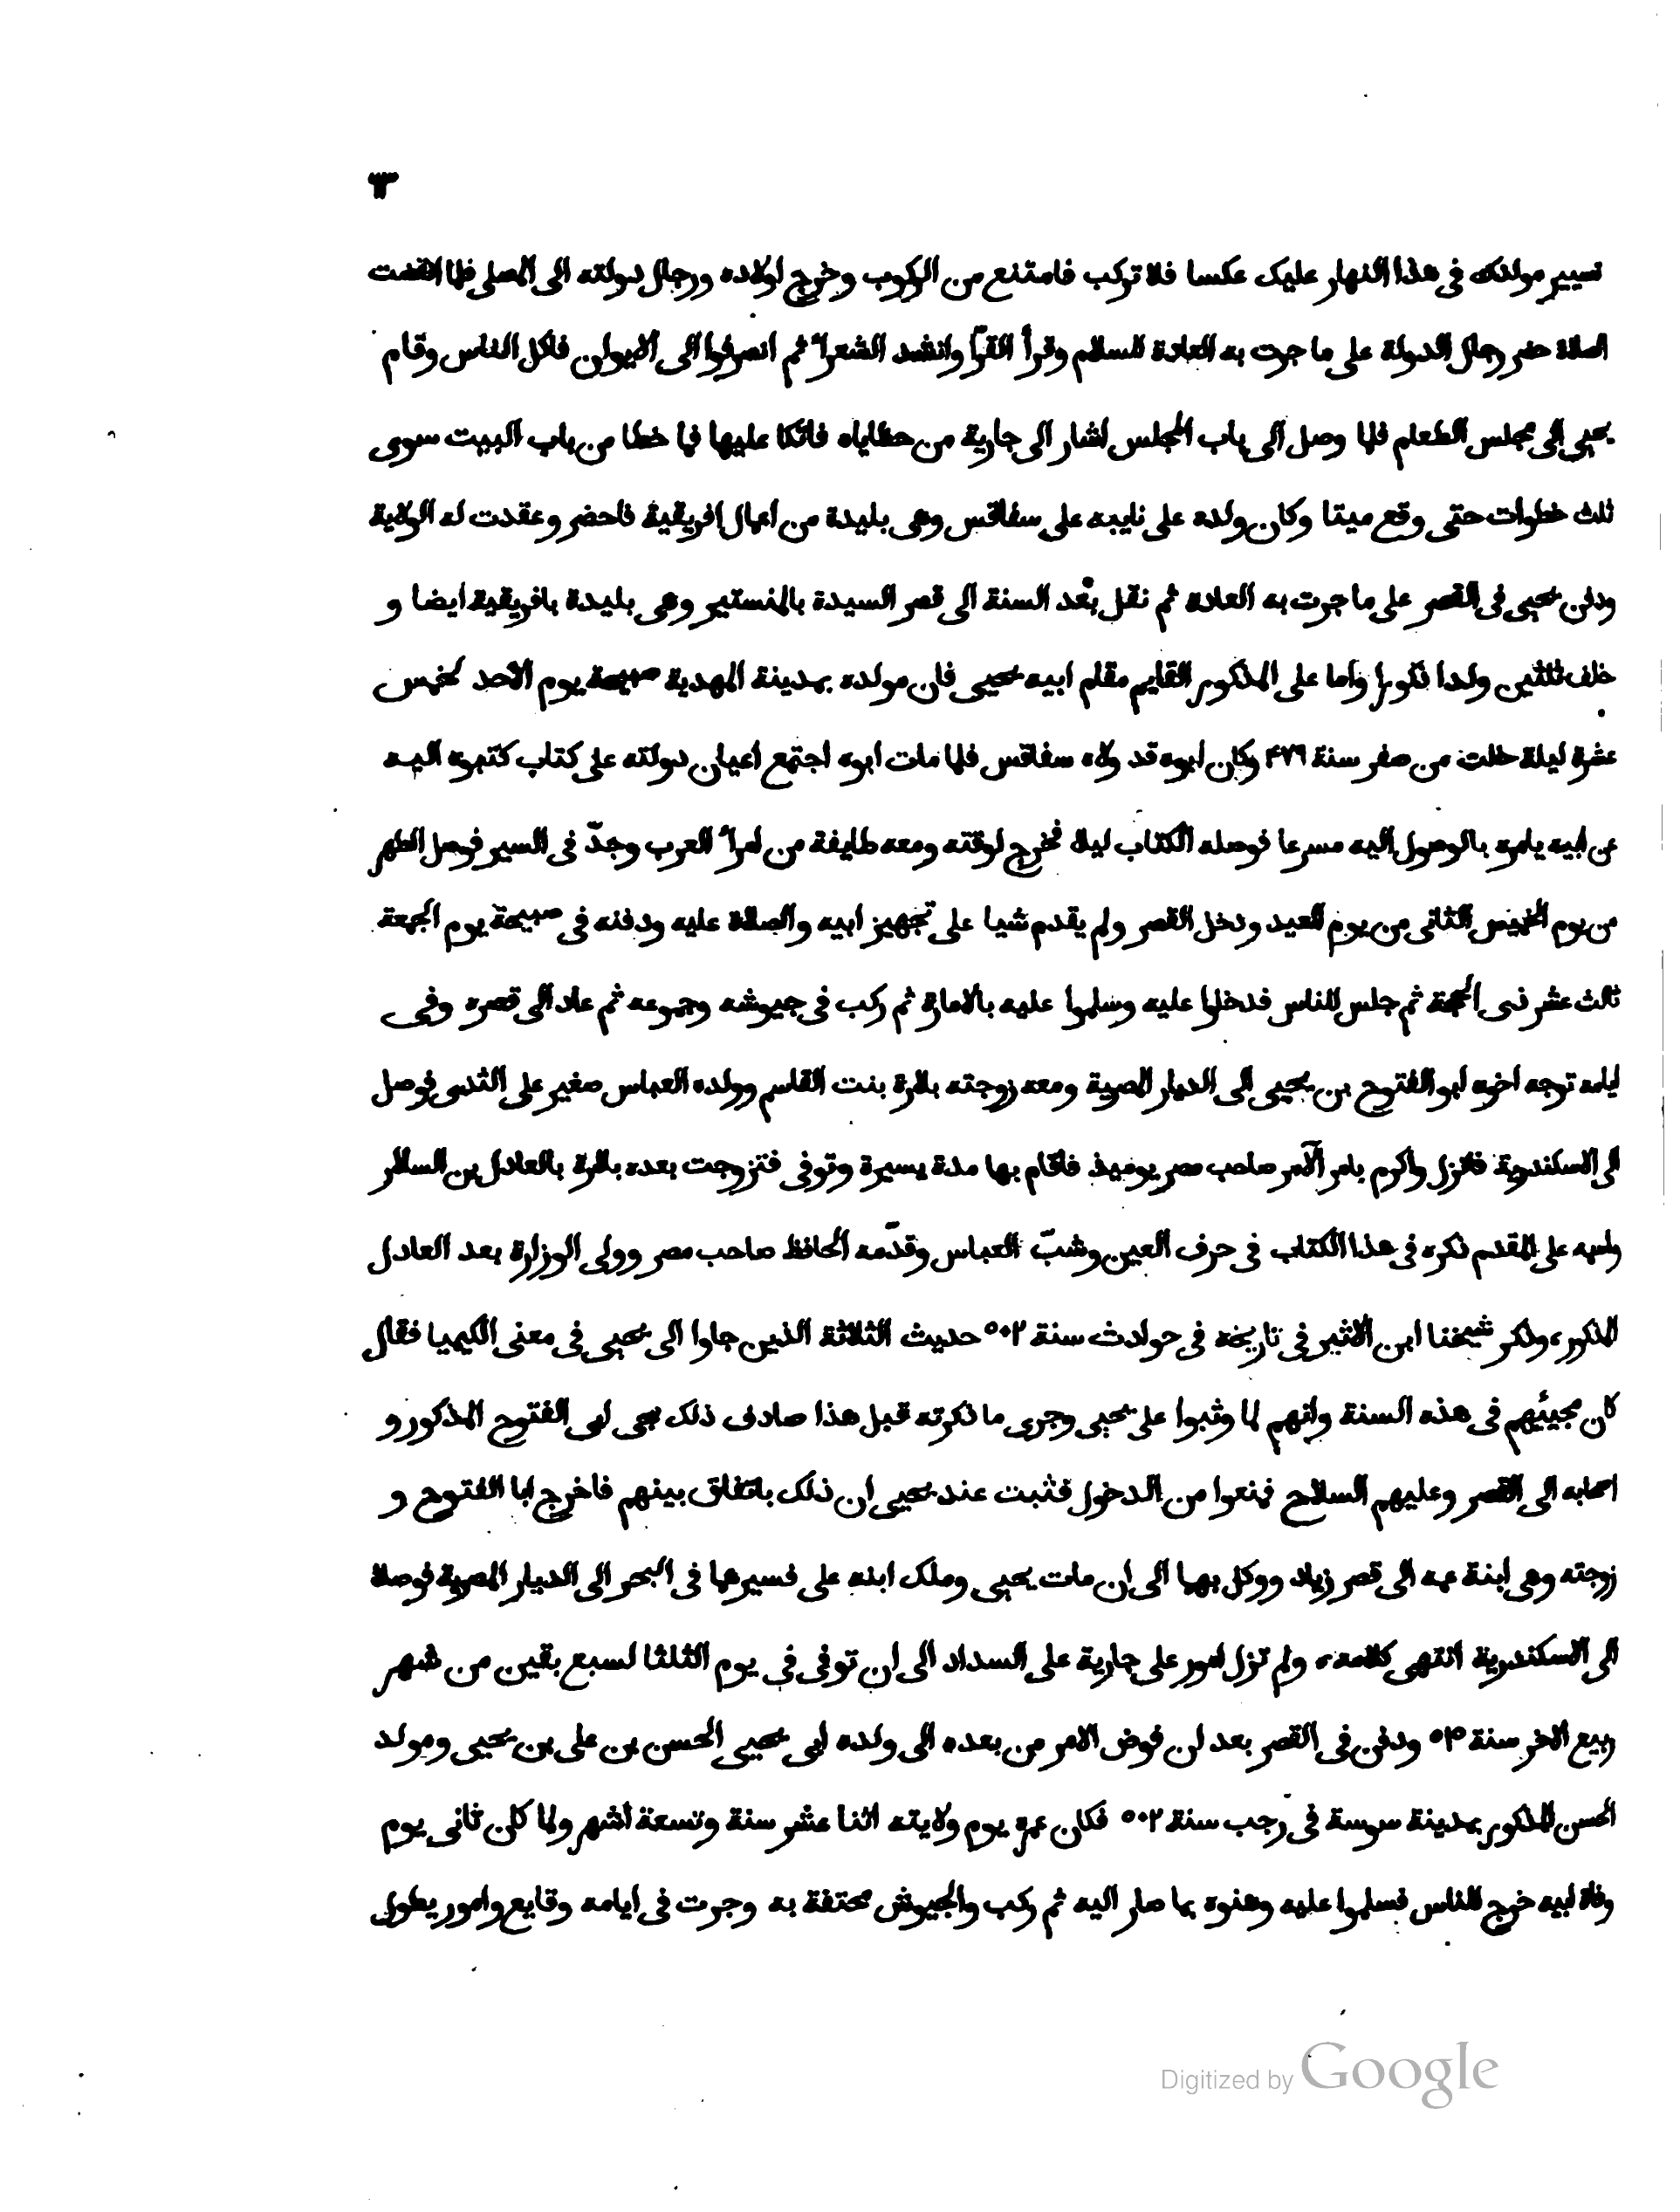 ٣
تسيير مولدك فى هذا النهار عليك عكسا فلا تركب فامتنع من الركوب وخرج اولاده ورجال دولته الى المصلى فلما انقضت
الصلاة حضر رجال الدولة على ما جرت به العادة للسلام وقرأ القرّا وانشد الشعرا ثم انصرفوا الى الايوان فاكل الناس وقام
يحيى الى مجلس الطعام فلما وصل الى باب المجلس اشار الى جارية من حظاياه فاتكا عليها فما خطا من باب البيت سوى
ثلث خطوات حتى وقع ميتا وكان ولده على نايبه على سفاقس وهى بليدة من اعمال افريقية فاحضر وعقدت له الولاية
ودفن يحيى فى القصر على ما جرت به العادة ثم نقل بعد السنة الى قصر السيدة بالمنستير وهى بليدة بافريقية ايضا و
خلف ثلثين ولدا ذكورا واما على المذكور القايم مقام ابيه يحيى فان مولده بمدينة المهدية صبيحة يوم الاحد لخمس
عشرة ليلة خلت من صفر سنة ٤٧٩ وكان ابوه قد ولاه سفاقس فلما مات ابوه اجتمع اعيان دولته على كتاب كتبوه اليه
عن ابيه يامره بالوصول اليه مسرعا فوصله الكتاب ليلا فخرج لوقته ومعه طايفة من امرا العرب وجدّ فى السير فوصل الظهر
من يوم الخميس الثانى من يوم العيد ودخل القصر ولم يقدم شيا على تجهيز ابيه والصلاة عليه ودفنه فى صبيحة يوم الجمعة
ثالث عشر ذى الحجة ثم جلس للناس فدخلوا عليه وسلموا عليه بالامارة ثم ركب فى جيوشه وجموعه ثم عاد الى قصره وفى
ايامه توجه اخوه ابو الفتوح بن يحيى الى الديار المصرية ومعه زوجته بلارة بنت القاسم وولده العباس صغير على الثدى فوصل
الى الاسكندرية فانزل واكرم بامر الآمر صاحب مصر يوميذ فاقام بها مدة يسيرة وتوفى فتزوجت بعده بلارة بالعادل بن السلار
واسمه على المقدم ذكره فى هذا الكتاب فى حرف العين وشبّ العباس وقدّمه الحافظ صاحب مصر وولى الوزارة بعد العادل
المذكور، وذكر شيخنا ابن الاثير فى تاريخه فى حوادث سنة ٥٠٢ حديث الثلاثة الذين جاوا الى يحيى فى معنى الكيميا فقال
كان مجيئهم فى هذه السنة وانهم لما وثبوا على يحيى وجرى ما ذكرته قبل هذا صادف ذلك مجى ابى الفتوح المذكور و
اصحابه الى القصر وعليهم السلاح فمنعوا من الدخول فثبت عند يحيى ان ذلك باتفاق بينهم فاخرج ابا الفتوح و
زوجته وهى ابنة عمه الى قصر زياد ووكل بهما الى ان مات يحيى وملك ابنه على فسيرهما فى البحر الى الديار المصرية فوصلا
الى الاسكندرية انتهى كلامه، ولم تزل امور على جارية على السداد الى ان توفى فى يوم الثلثا لسبع بقين من شهر
ربيع الاخر سنة ودفن فى القصر بعد ان فوض الامر من بعده الى ولده ابى يحيى الحسن بن على بن يحيى ومولد
الحسن المذكور بمدينة سوسة فى رجب سنة ٥٠٢ فكان عمره يوم ولايته اثنا عشر سنة وتسعة اشهر ولما كان ثانى يوم
وفاة ابيه خرج للناس فسلموا عليه وهنوه بما صار اليه ثم ركب والجيوش محتفة به وجرت فى ايامه وقايع وامور يطول
Digitized by Google